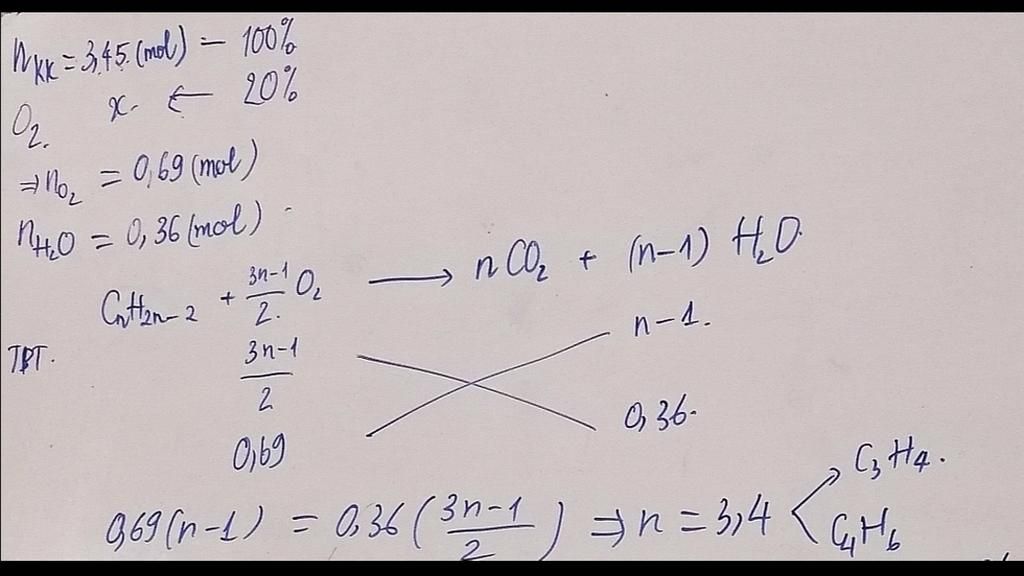 n_KK = 3,45 (mol) — 100%
O₂. x. ← 20%
⇒ n_O₂ = 0,69 (mol)
n_H₂O = 0,36 (mol)
CₙH₂ₙ₋₂ + (3n-1)/2 O₂ ⟶ nCO₂ + (n-1) H₂O
TPT. (3n-1)/2 n-1.
0,69 0,36.
0,69(n-1) = 0,36((3n-1)/2) ⇒ n = 3,4 < C₃H₄.
C₄H₆